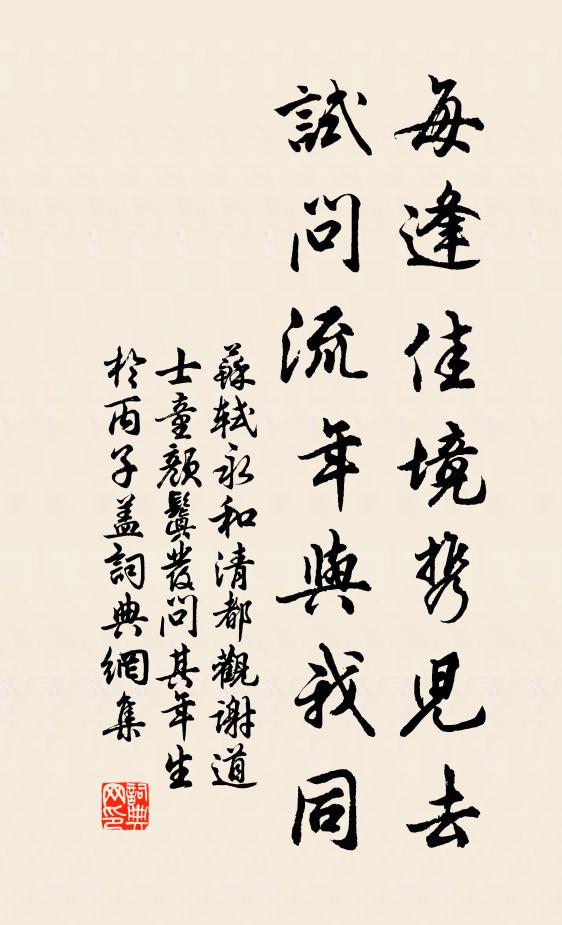 每逢佳境攜兒去
試問流年與我同
蘇軾永和清都觀謝道
士童顏鬒發問其年生
於丙子蓋詞典網集
詞典网印